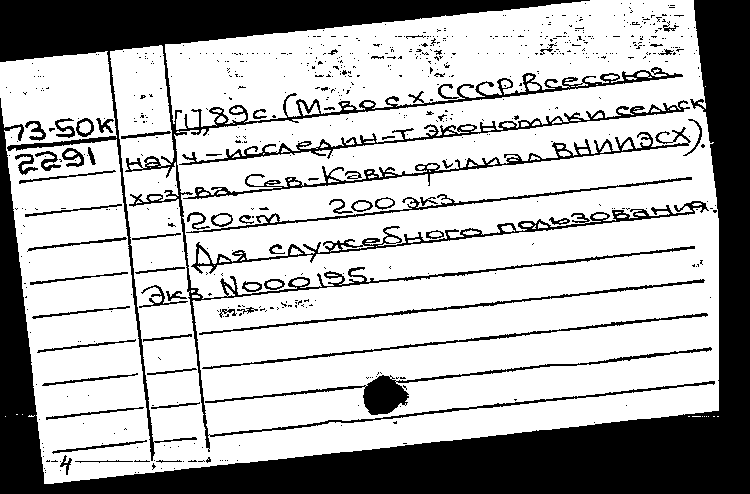 73-50к
2291
[1], 89 с. (М-во с.х. СССР. Всесоюз.
науч.-исслед. ин-т экономики сельск.
хоз-ва. Сев.-Кавк. филиал ВНИИЭСХ).
20 см 200 экз.
Для служебного пользования.
Экз. N000195.
4